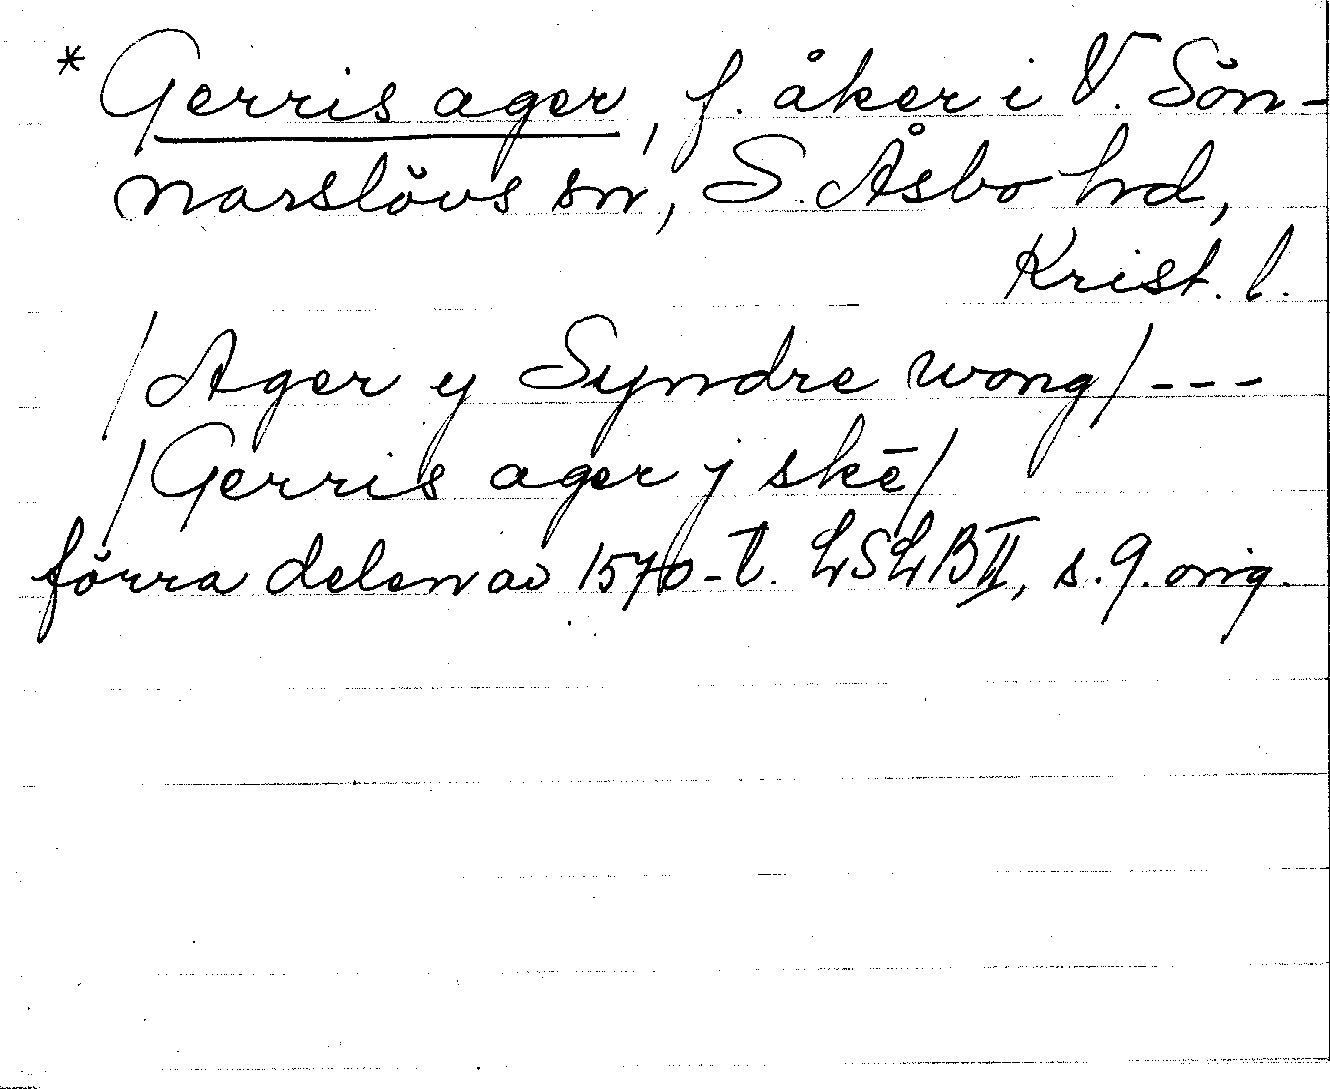 * Gerris ager, f. åker i V. Sön-
narslövs sn, S. Åsbo hd,
Krist. l.
/Ager y Syndre wong/ ---
/Gerris ager j skē/
förra delen av 1570-t. LSLB II, s. 9. orig.